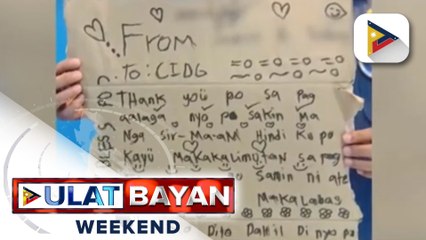 From
To: CIDG
THANK YOU PO SA Pag
aalaga nyo po sakin ma
Nga Sir-Ma-am Hindi Ko po
Kayu Makakalimutan sa pag
Samin ni ate
Makalabas
Dito Dahil Di nyo po
ULAT BAYAN
WEEKEND